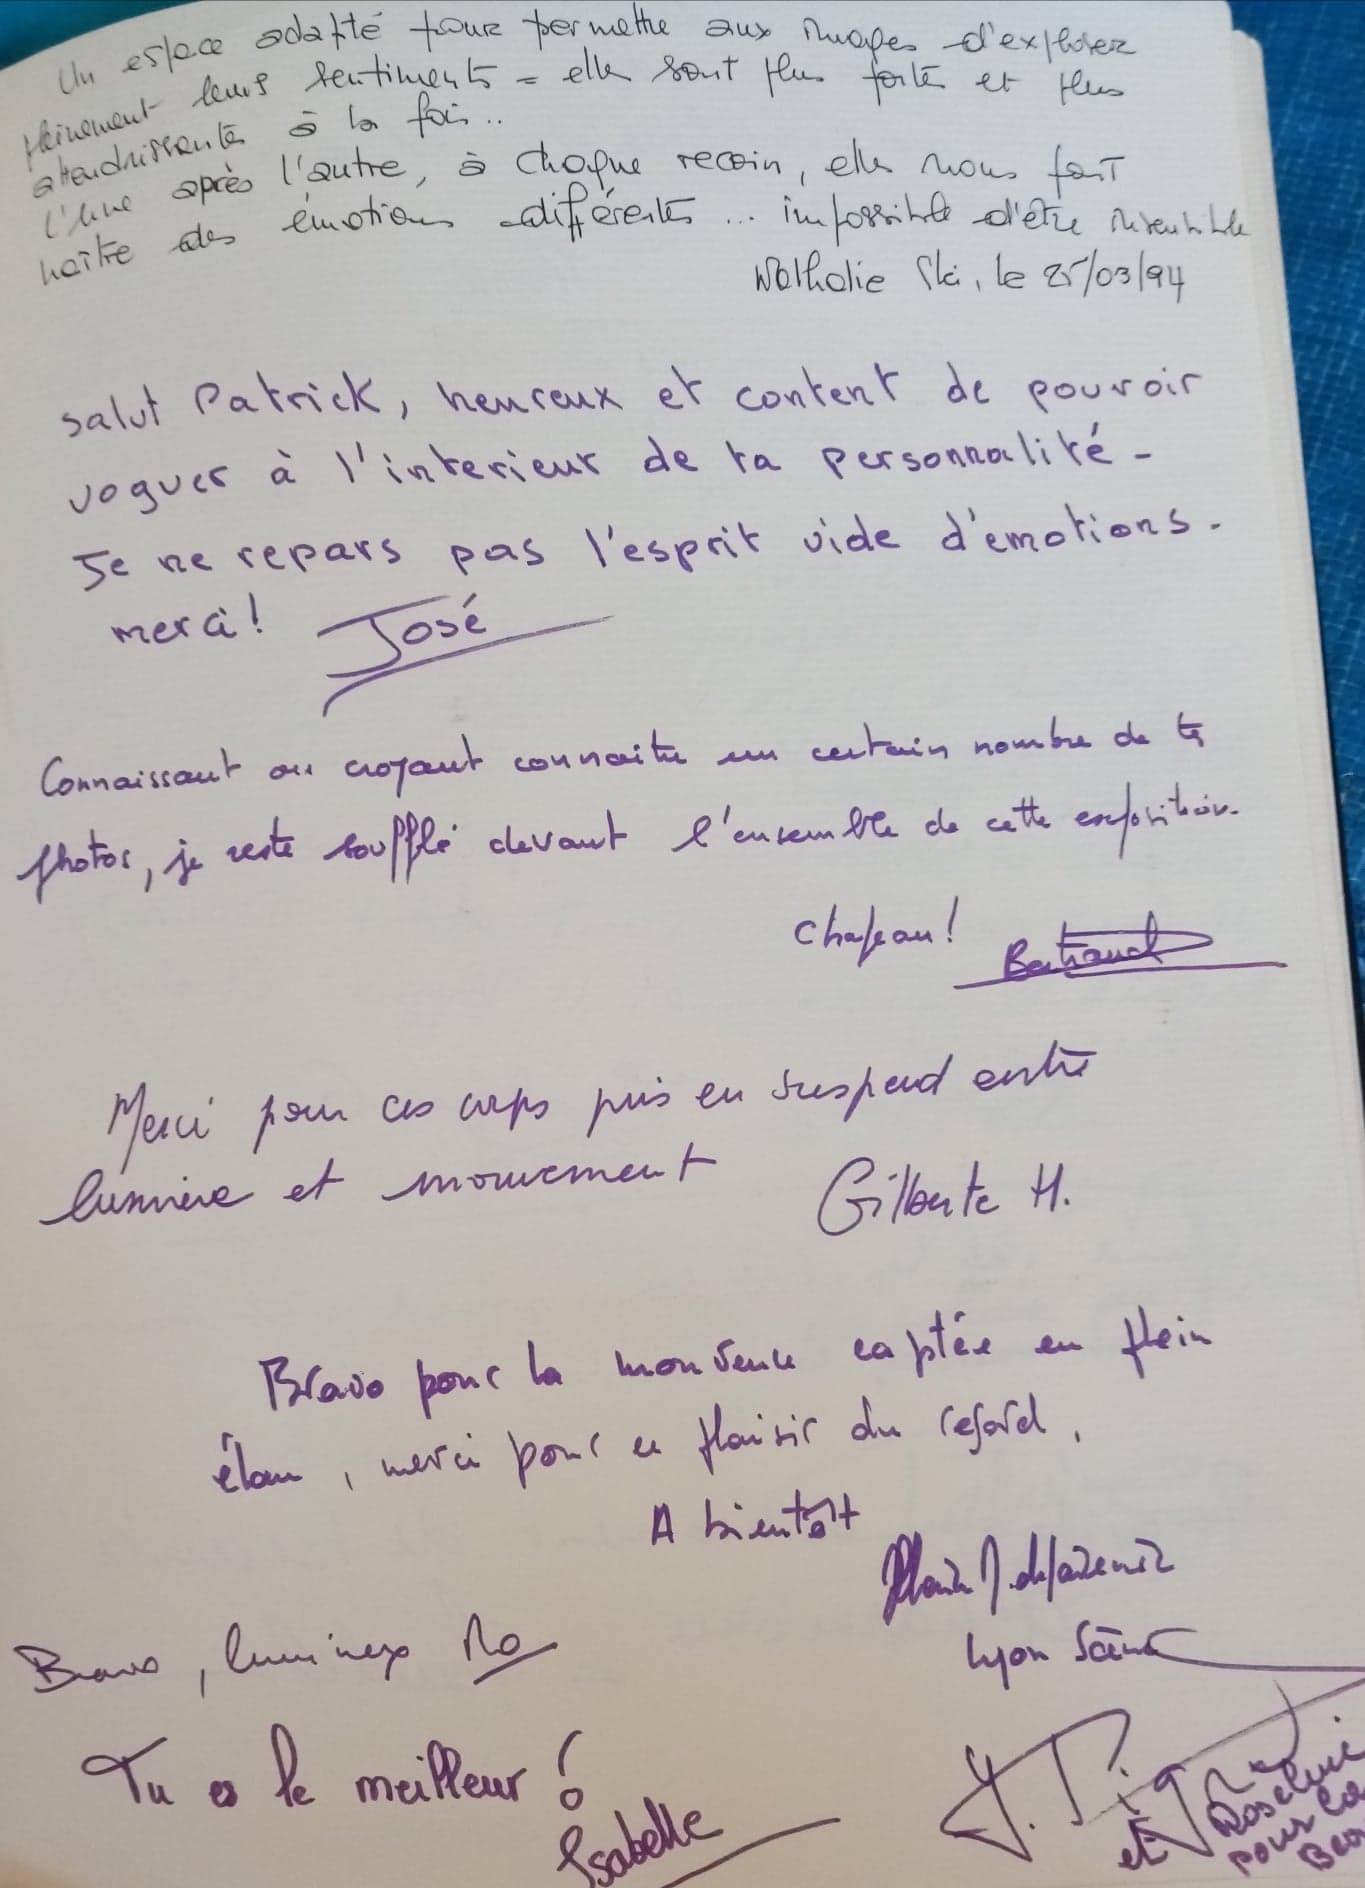 Un espace adapté pour permettre aux images d'explorer
pleinement leurs sentiments - elles sont plus fortes et plus
attendrissantes à la fois..
l'une après l'autre, à chaque recoin, elles nous font
naître des émotions différentes ... impossible d'être
Nathalie Ski, le 25/03/94
Salut Patrick, heureux et content de pouvoir
voguer à l'interieur de ta personnalité -
Je ne repars pas l'esprit vide d'émotions.
merci! José
Connaissant ou croyant connaitre un certain nombre de tes
photos, je reste soufflé devant l'ensemble de cette exposition.
Chapeau! Bertrand
Merci pour ces corps pris en suspend entre
lumière et mouvement Gilberte H.
Bravo pour la captée en plein
élan, merci pour ce plaisir du regard,
A bientôt
Lyon
Bravo, lumineux
Tu es le meilleur!
Isabelle
et
pour